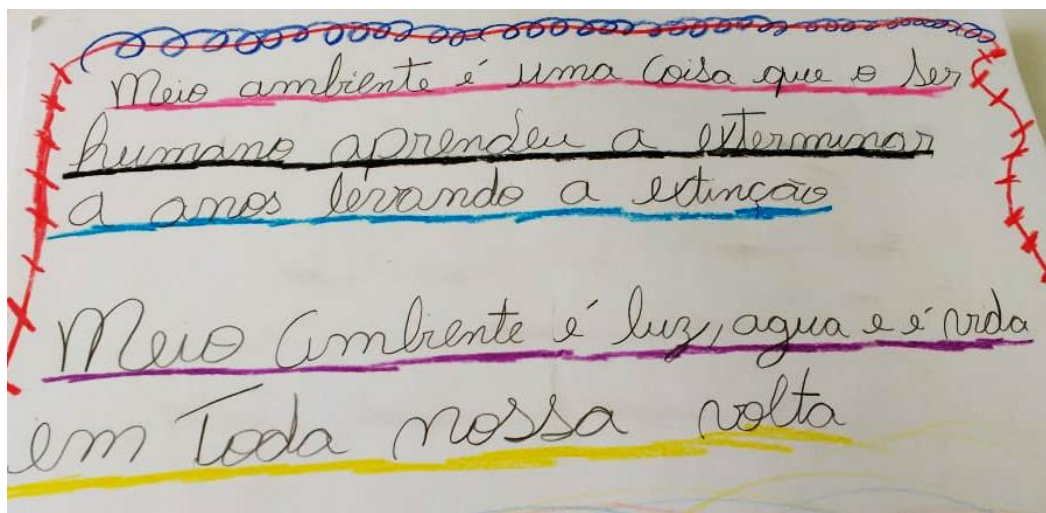 Meio ambiente é uma coisa que o ser
humano aprendeu a exterminar
a anos levando a extinção
Meio Ambiente é luz, agua e é vida
em Toda nossa volta